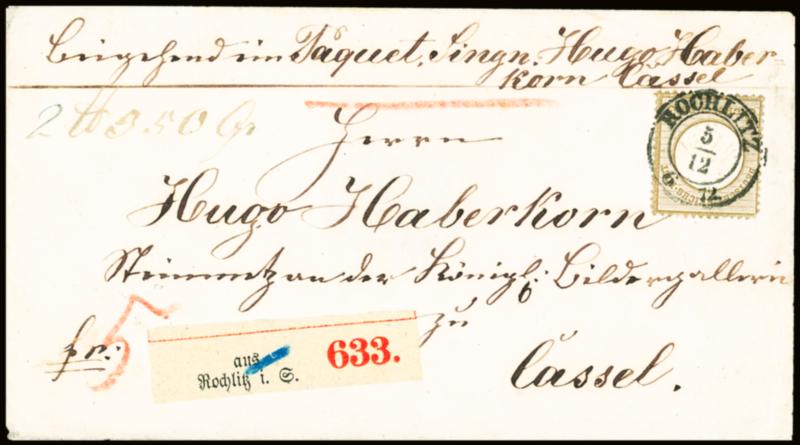 Beigehend ein Paquet, Singn. Hugo Haber-
korn Cassel
2 ℔ 350 Gr
Herrn
Hugo Haberkorn
Steinmetz an der Königl: Bildergallerie
zu
Cassel.
fr:
5
aus
Rochlitz i. S.
633.
ROCHLITZ
5
12
6 72